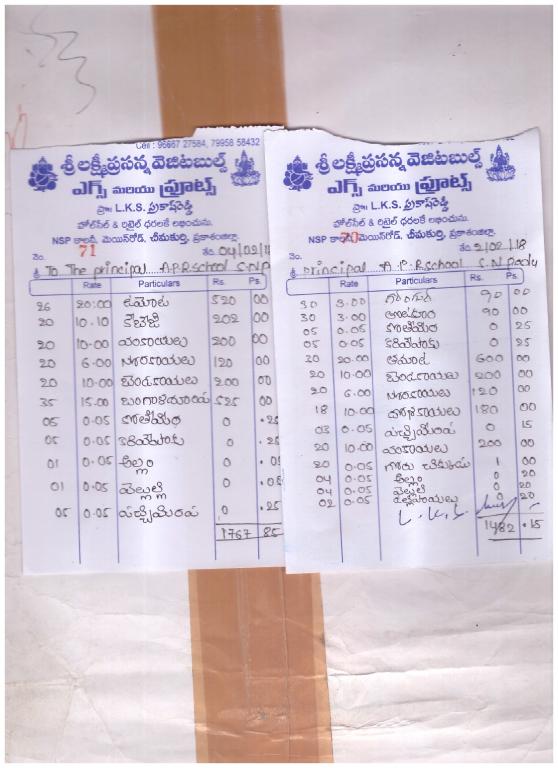 Cell : 96667 27584, 79958 58432
శ్రీ లక్ష్మీప్రసన్న వెజిటబుల్స్
ఎగ్స్ మరియు ఫ్రూట్స్
ప్రొ: L.K.S. ప్రకాష్‌రెడ్డి
హోల్‌సేల్ & రిటైల్ ధరలకే లభించును.
NSP కాలనీ, మెయిన్‌రోడ్, చీమకుర్తి, ప్రకాశంజిల్లా.
నెం. 71 తేది. 04/02/18
శ్రీ To The principal A.P.R School S.N.P
Rate Particulars Rs. Ps.
26 20:00 టమోట 520 00
20 10.10 కేబేజి 202 00
20 10-00 వంకాయలు 200 00
20 6.00 సొరకాయలు 120 00
20 10-00 బెండకాయలు 200 00
35 15.00 525 00
05 0.05 కొతిమీర 0 .25
05 0.05 కరివేపాకు 0 .25
01 0.05 అల్లం 0 .05
01 0.05 వెల్లుల్లి 0 .05
05 0.05 పచ్చిమిరప 0 .25
1767 85
శ్రీ లక్ష్మీప్రసన్న వెజిటబుల్స్
ఎగ్స్ మరియు ఫ్రూట్స్
ప్రొ: L.K.S. ప్రకాష్‌రెడ్డి
హోల్‌సేల్ & రిటైల్ ధరలకే లభించును.
NSP కాలనీ, మెయిన్‌రోడ్, చీమకుర్తి, ప్రకాశంజిల్లా.
నెం. 70 తేది. 2/02/18
శ్రీ principal A.P.R School S.N Padu
Rate Particulars Rs. Ps.
30 3.00 గోంగూర 90 00
30 3.00 90 00
05 0.05 కొతిమీర 0 25
05 0.05 కరివేపాకు 0 25
30 20.00 టమాట 600 00
20 10.00 బెండకాయలు 200 00
20 6.00 సొరకాయలు 120 00
18 10.00 దోసకాయలు 180 00
03 0.05 పచ్చిమిరప 0 15
20 10.00 వంకాయలు 200 00
20 0.05 గోరు చిక్కుడు 1 00
04 0.05 అల్లం 0 20
04 0.05 వెల్లుల్లి 0 20
02 0.05 0 20
L.K.S
1482 .15